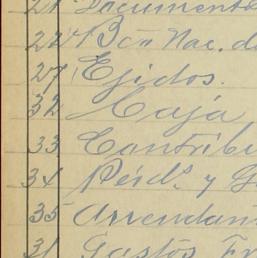 21 Documento
22 Bco Nac. d
27 Ejidos.
32 Caja
33 Contribu
34 Pérds. y G
35 Arrendam
31 Gastos